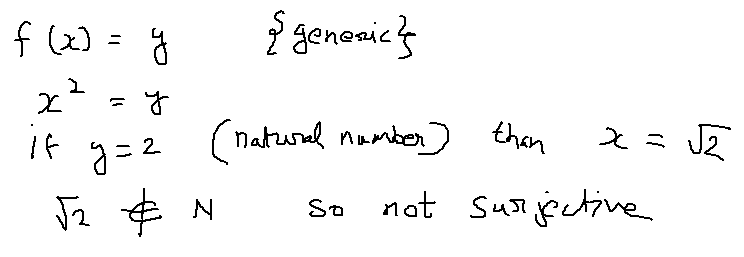 f(x) = y {generic}
x² = y
if y=2 (natural number) then x = √2
√2 ∉ N so not surjective